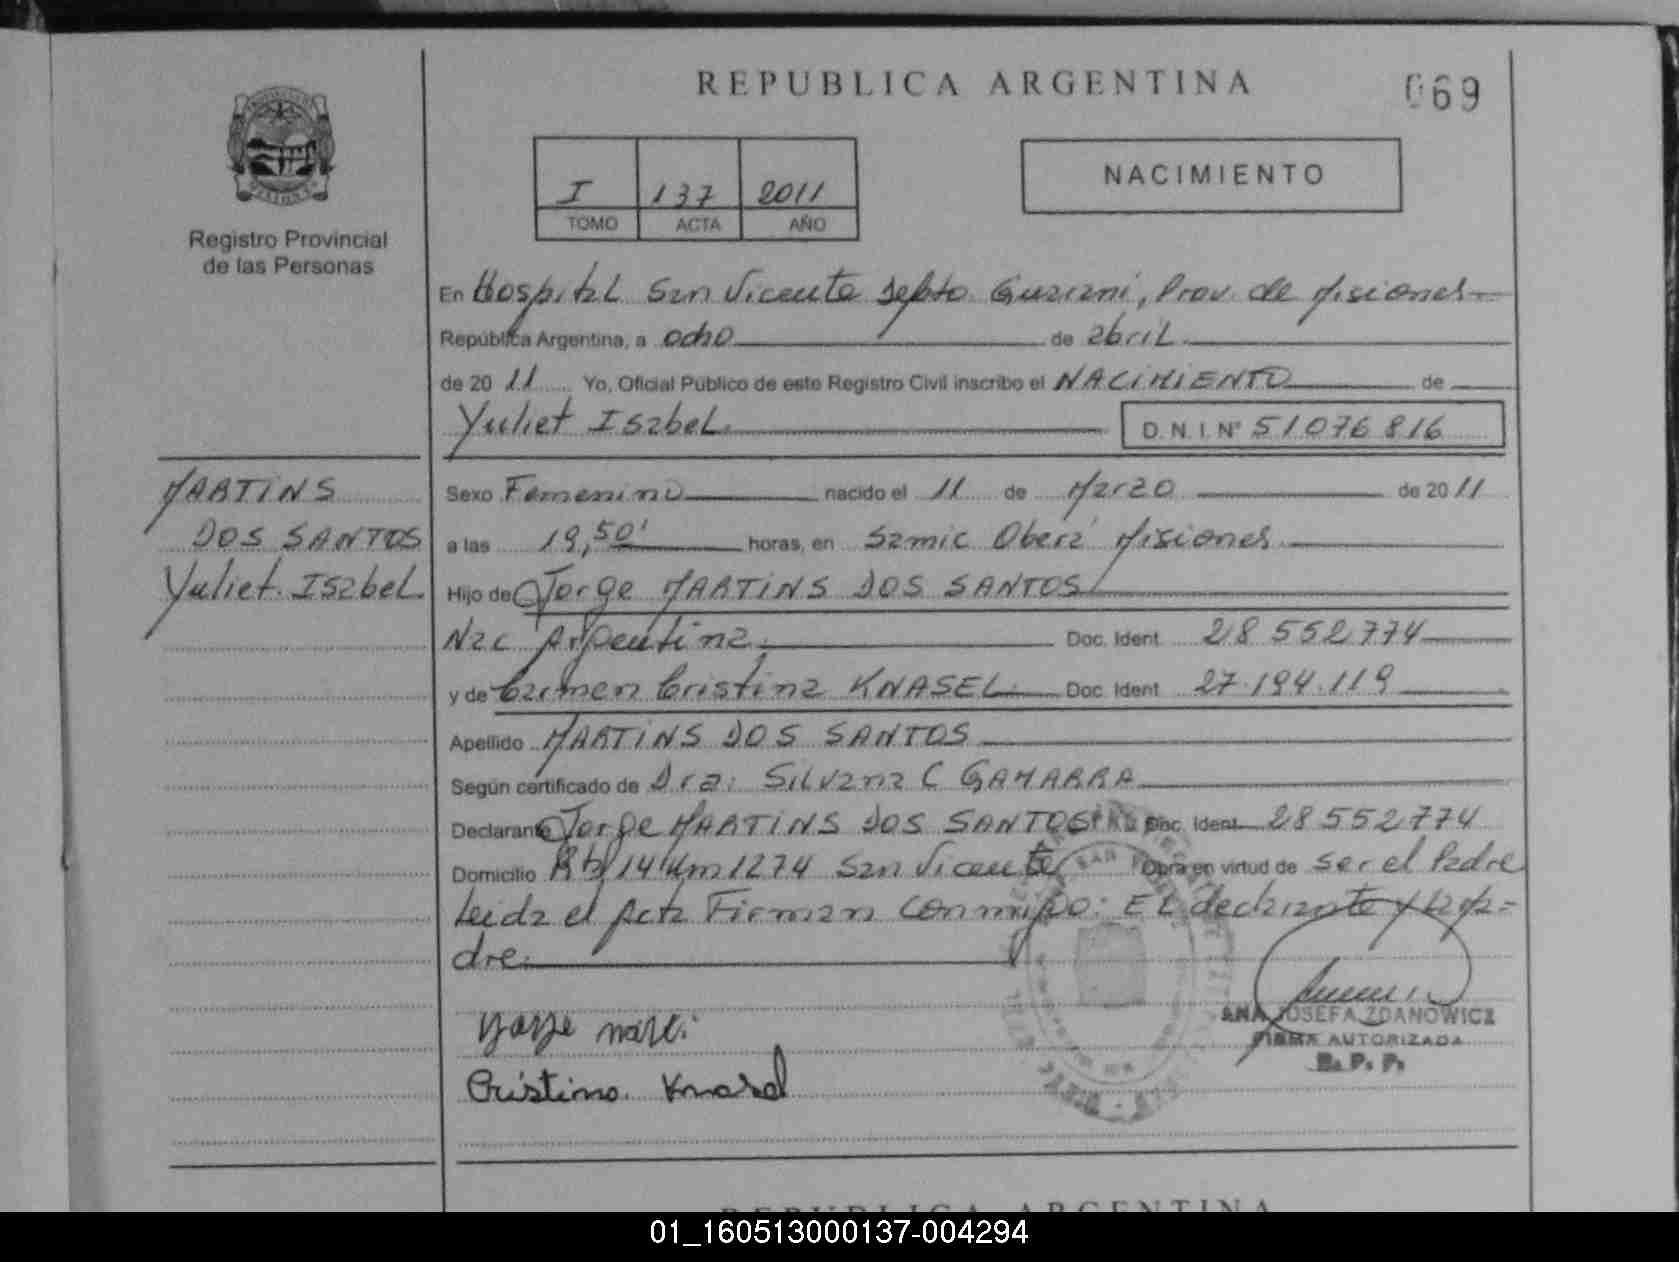 REPUBLICA ARGENTINA
069
I 137 2011
TOMO ACTA AÑO
NACIMIENTO
Registro Provincial
de las Personas
En Hospital San Vicente Depto. Guarani, Prov. de Misiones
República Argentina, a ocho de abril
de 2011 Yo, Oficial Público de este Registro Civil inscribo el NACIMIENTO de
Yuliet Isabel D.N.I. Nº 51076816
MARTINS
DOS SANTOS
Yuliet Isabel
Sexo Femenino nacido el 11 de Marzo de 2011
a las 19,50' horas, en Samic Oberá Misiones
Hijo de Jorge MARTINS DOS SANTOS
Nac Argentina Doc. Ident. 28 552 774
y de Carmen Cristina KNASEL Doc. Ident. 27.194.119
Apellido MARTINS DOS SANTOS
Según certificado de Dra: Silvana C GAMARRA
Declarante Jorge MARTINS DOS SANTOS Doc. Ident. 28552774
Domicilio Rta 14 Km 1274 San Vicente Obra en virtud de ser el Padre
Leida el Acta Firman conmigo: El declarante y la Ma=
dre.
Cristina Knasel
ANA JOSEFA ZDANOWICZ
FIRMA AUTORIZADA
R. P. P.
REPUBLICA ARGENTINA
01_160513000137-004294